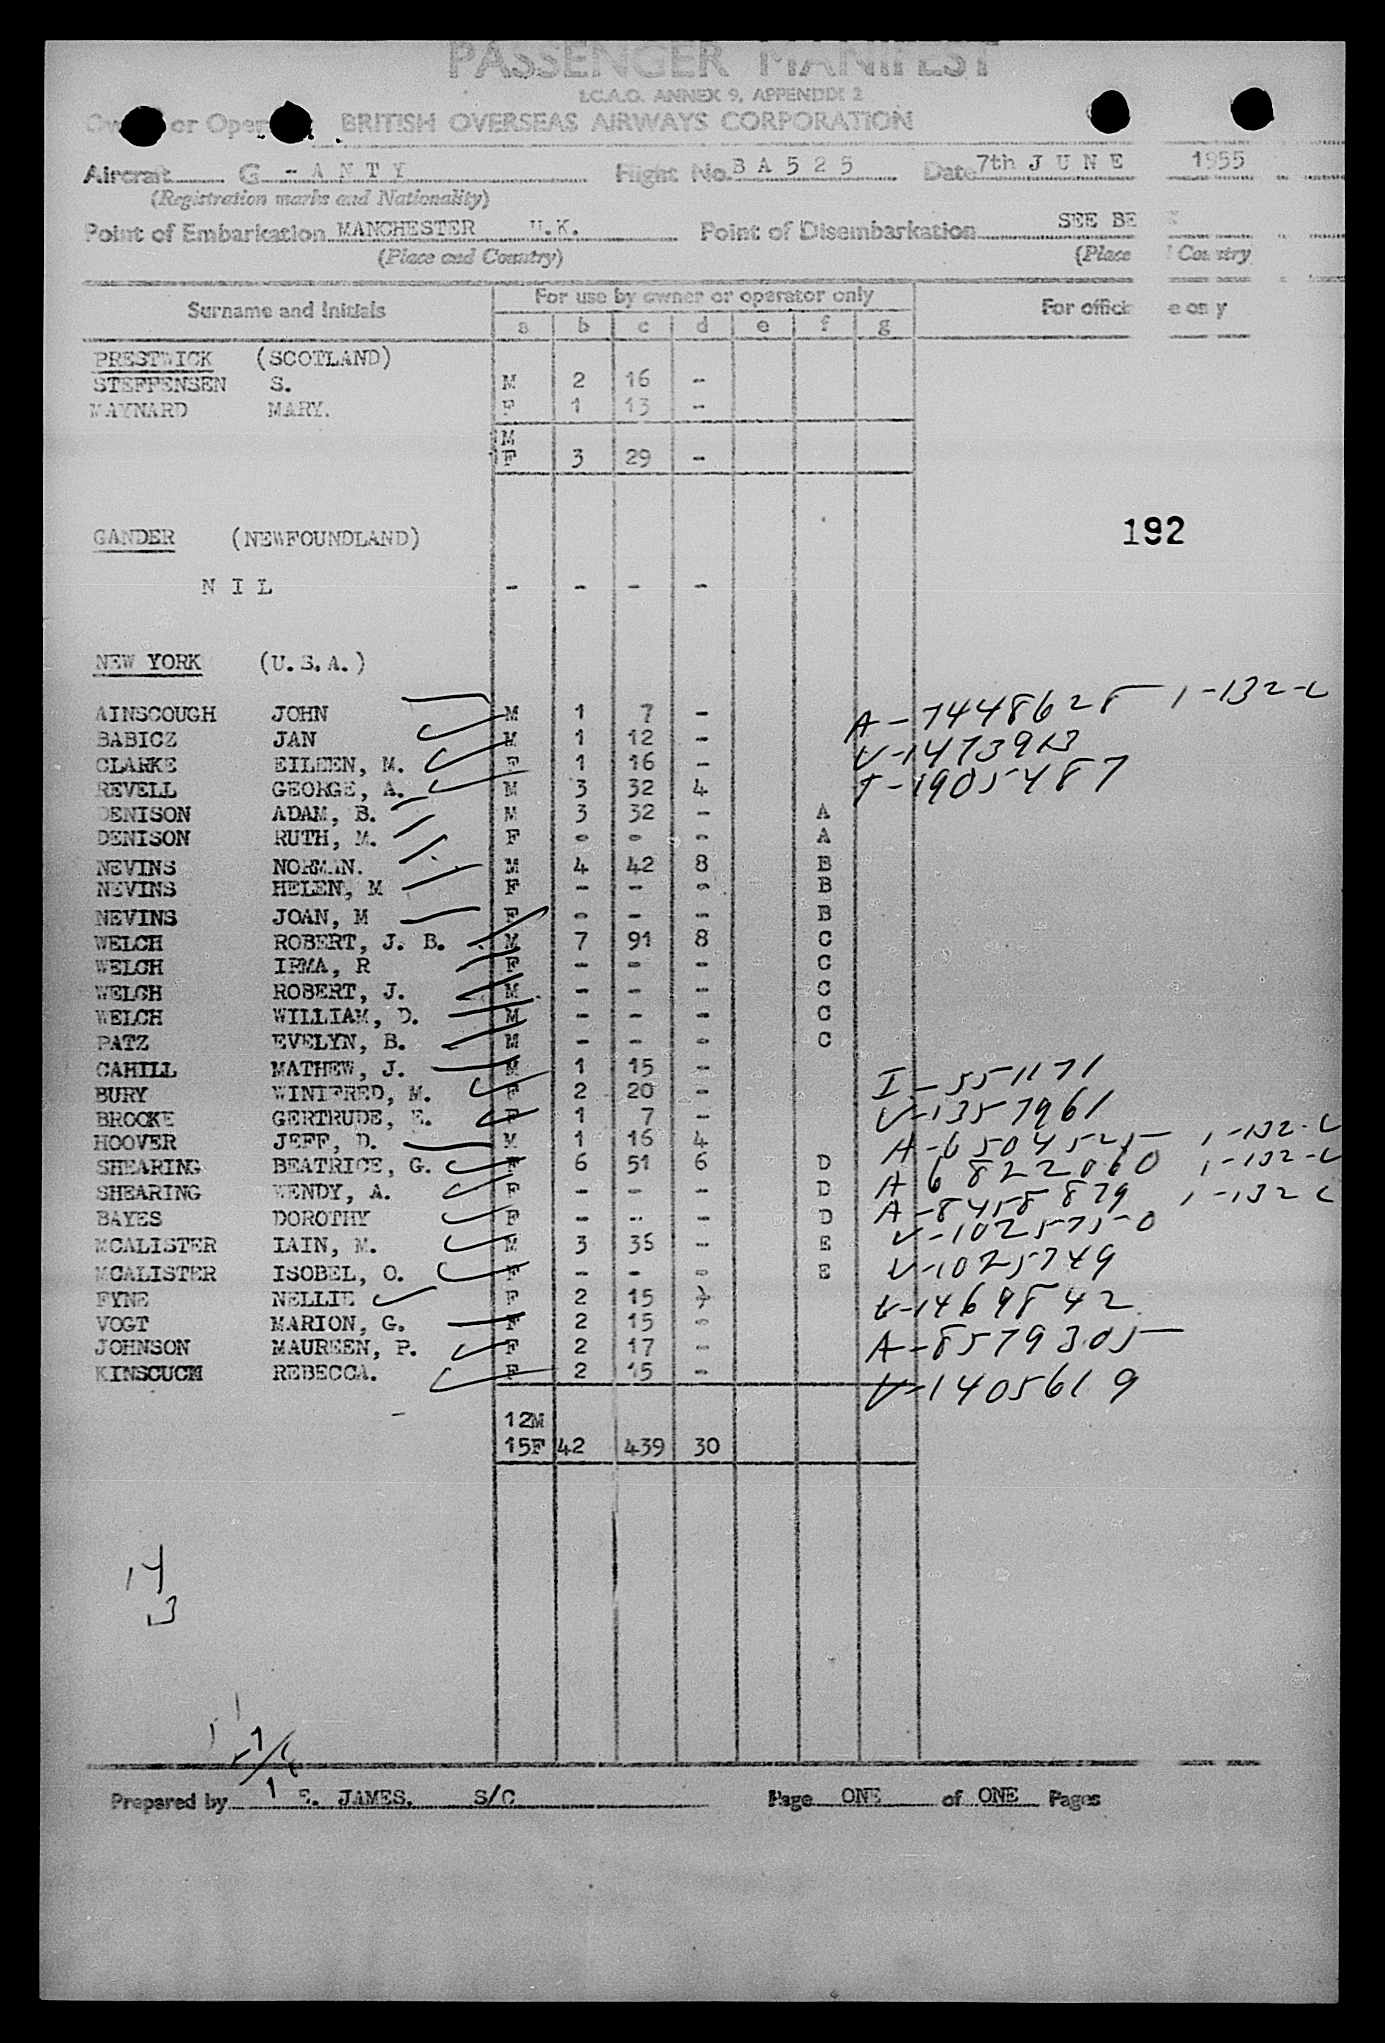 PASSENGER MANIFEST
I.C.A.O. ANNEX 9, APPENDIX 2
or Oper BRITISH OVERSEAS AIRWAYS CORPORATION
Aircraft G - A N T Y Flight No. B A 5 2 5 Date 7th J U N E 1955
(Registration marks and Nationality)
Point of Embarkation MANCHESTER U.K. Point of Disembarkation SEE BE
(Place and Country) (Place Country
Surname and Initials For use by owner or operator only For offic e on y
a b c d e f g
PRESTWICK (SCOTLAND)
STEFFENSEN S. M 2 16 -
MAYNARD MARY. F 1 13 -
M
F 3 29 -
192
GANDER (NEWFOUNDLAND)
N I L - - - -
NEW YORK (U.S.A.)
AINSCOUGH JOHN M 1 7 - A-7448628 1-132-L
BABICZ JAN M 1 12 - V-1473913
CLARKE EILEEN, M. F 1 16 - I-1905487
REVELL GEORGE, A. M 3 32 4
DENISON ADAM, B. M 3 32 - A
DENISON RUTH, M. F - - - A
NEVINS NORMAN. M 4 42 8 B
NEVINS HELEN, M F - - - B
NEVINS JOAN, M F - - - B
WELCH ROBERT, J. B. M 7 91 8 C
WELCH IRMA, R F - - - C
WELCH ROBERT, J. M - - - C
WELCH WILLIAM, D. M - - - C
PATZ EVELYN, B. M - - - C
CAHILL MATHEW, J. M 1 15 - I-551171
BURY WINIFRED, M. F 2 20 - V-1357961
BROOKE GERTRUDE, E. F 1 7 - A-6504525 1-132-L
HOOVER JEFF, D. M 1 16 4
SHEARING BEATRICE, G. F 6 51 6 D A 6822060 1-132-L
SHEARING WENDY, A. F - - - D A-8458879 1-132 L
BAYES DOROTHY F - - - D V-1025750
MCALISTER IAIN, M. M 3 36 - E V-1025749
MCALISTER ISOBEL, O. F - - - E
FYNE NELLIE F 2 15 V-1469842
VOGT MARION, G. F 2 15 -
JOHNSON MAUREEN, P. F 2 17 - A-8579305
KINSCUCH REBECCA. F 2 15 - V-1405619
12M
15F 42 439 30
14
3
Prepared by E. JAMES. S/C Page ONE of ONE Pages